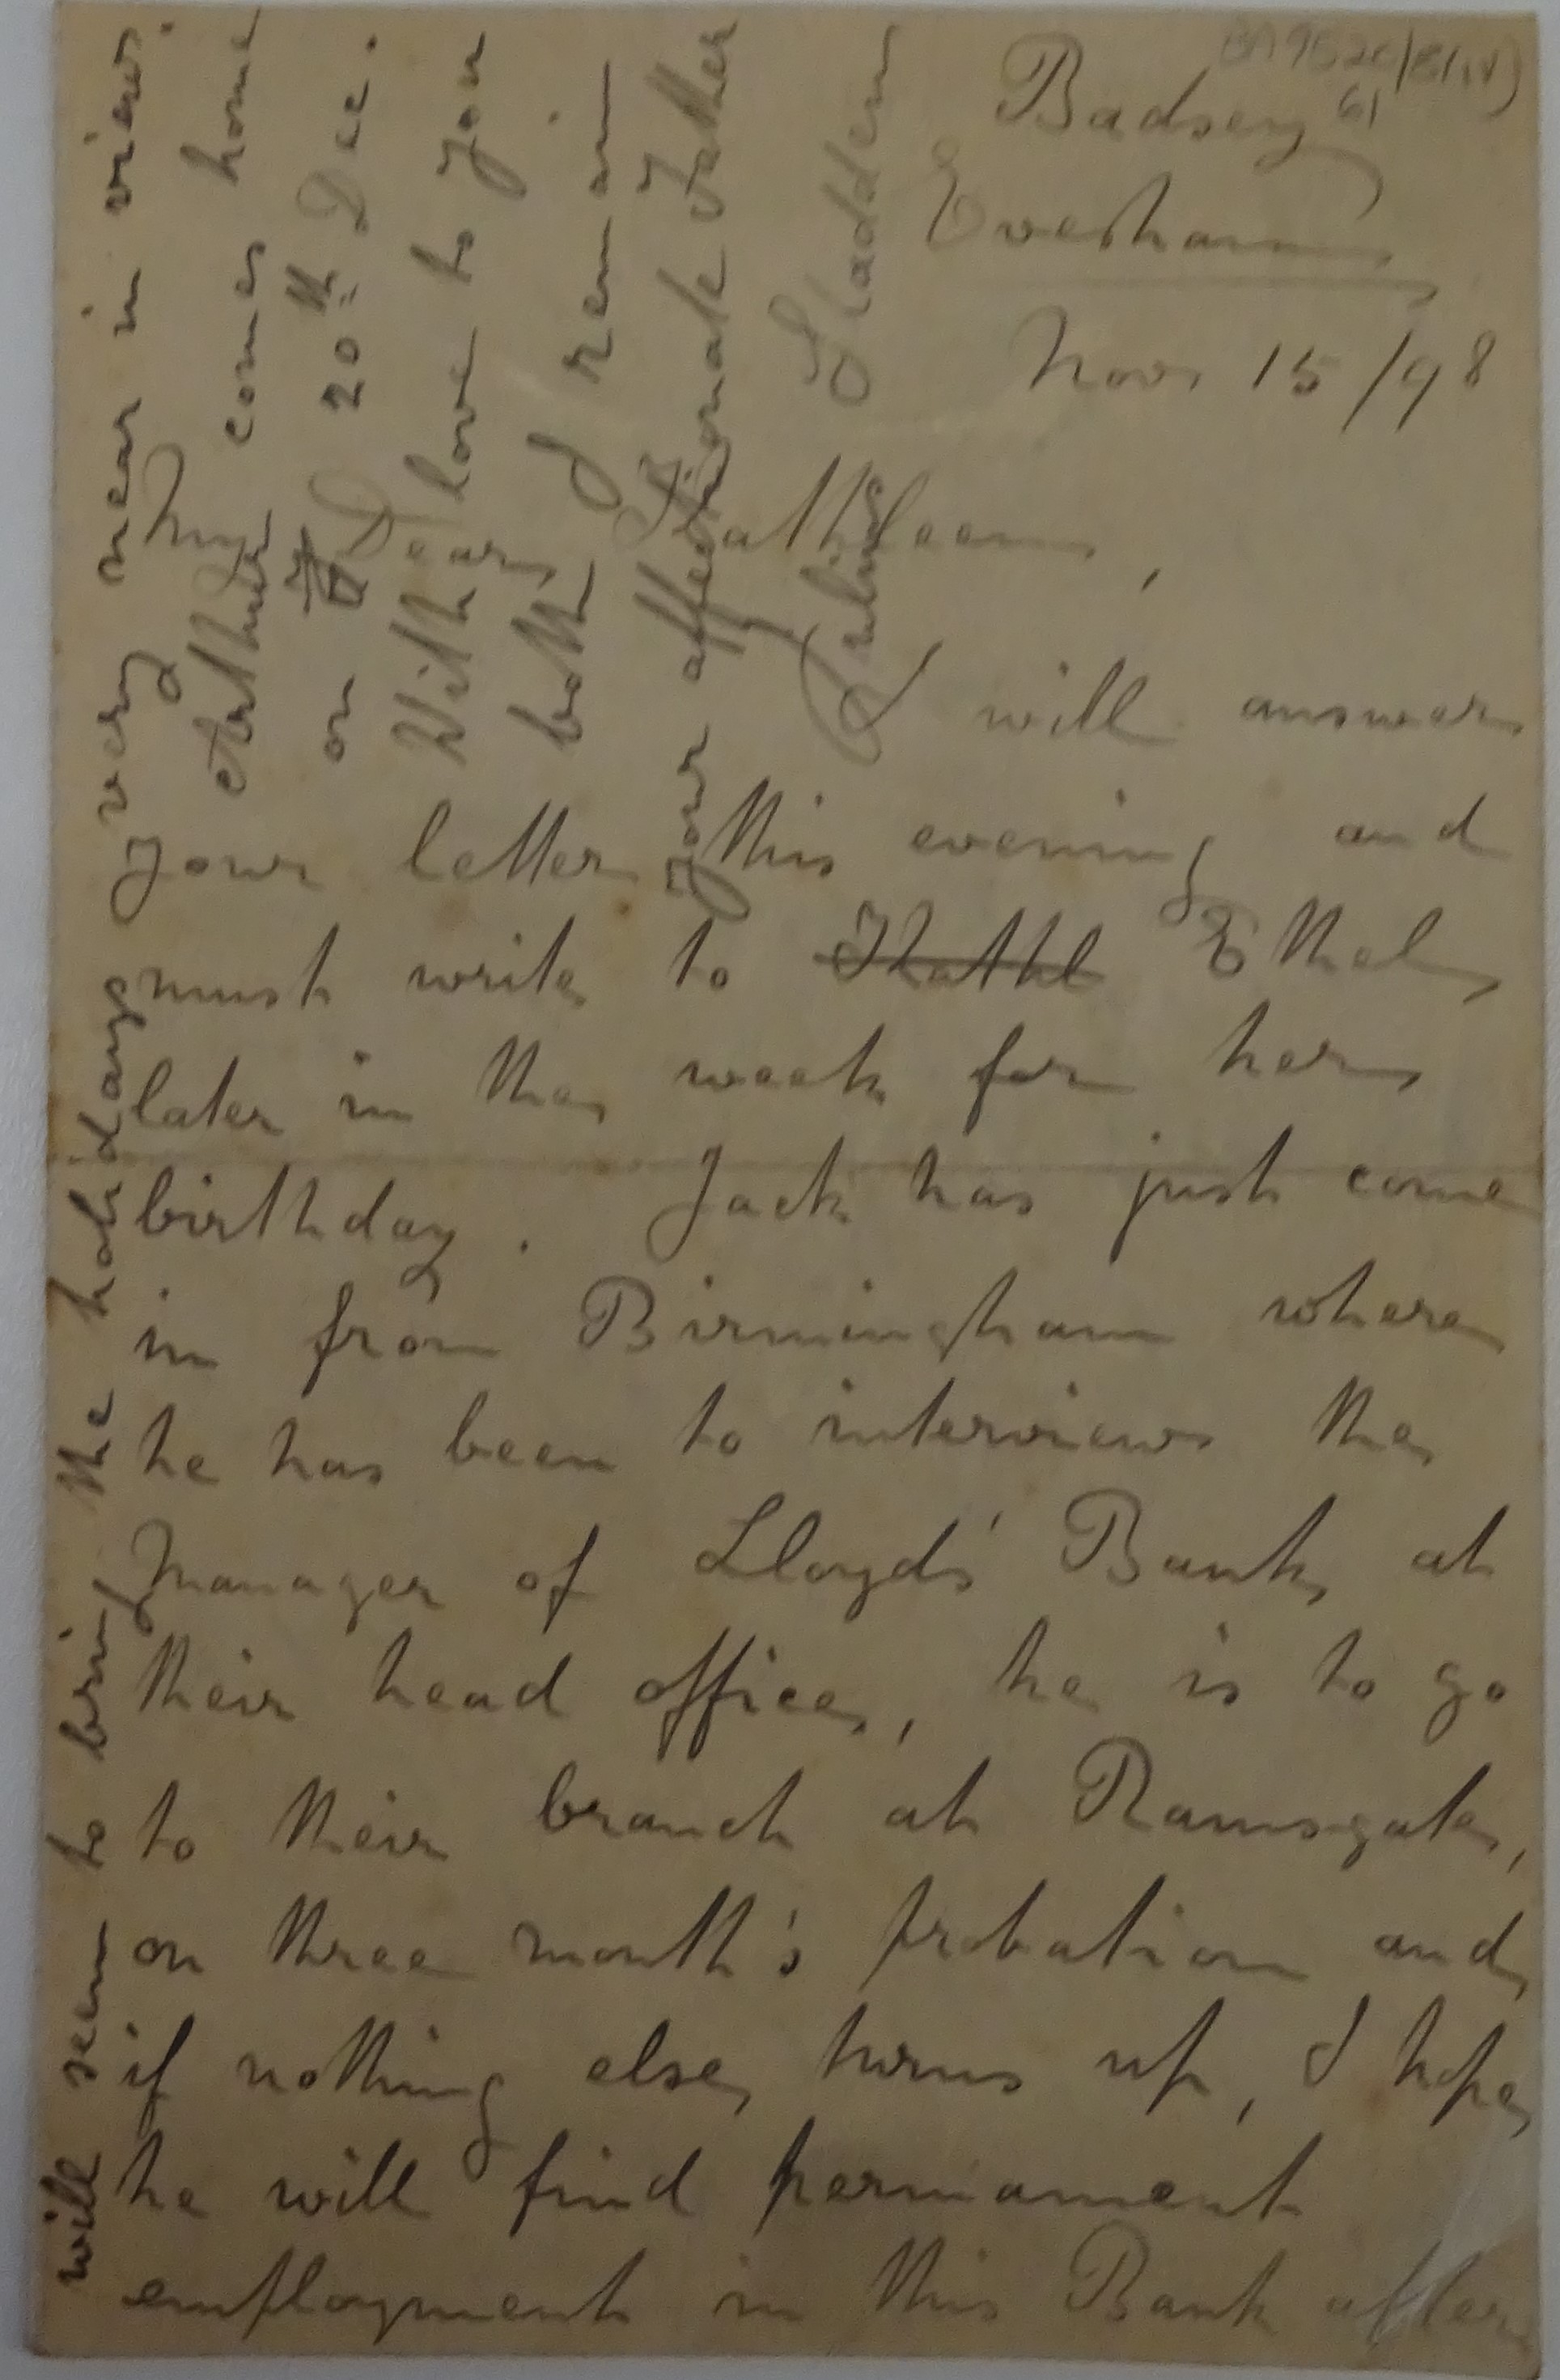 Badsey
Evesham
Nov 15/98
My Dear Kathleen,
I will answer
your letter this evening and
must write to Kathl Ethel
later in the week for her
birthday. Jack has just come
in from Birmingham where
he has been to interview the
Manager of Lloyds' Bank at
their head office, he is to go
to their branch at Ramsgate,
on three month's probation and
if nothing else turns up, I hope
he will find permanent
employment in this Bank after
will seem to bring the holidays very near in view.
Arthur comes home
on 20th Dec.
With love to you
both I remain
your affectionate Father
Julius Sladden